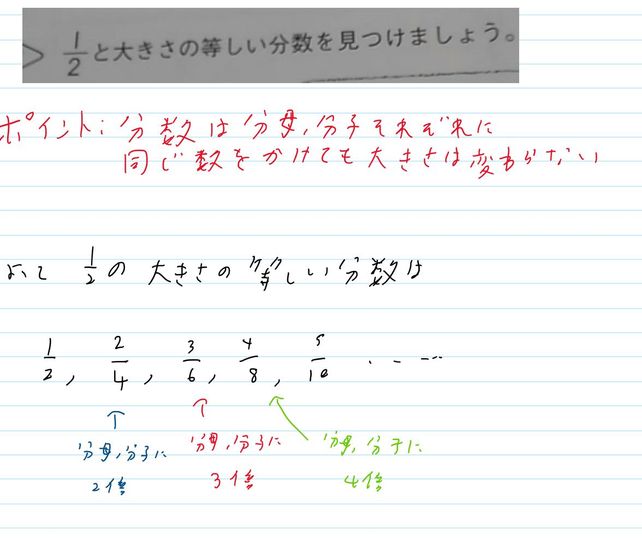 > 1/2と大きさの等しい分数を見つけましょう。
ポイント: 分数は分母,分子それぞれに
同じ数をかけても大きさは変わらない
よって 1/2の大きさの等しい分数は
1/2, 2/4, 3/6, 4/8, 5/10 ‥‥
分母,分子に 分母,分子に 分母,分子に
2倍 3倍 4倍